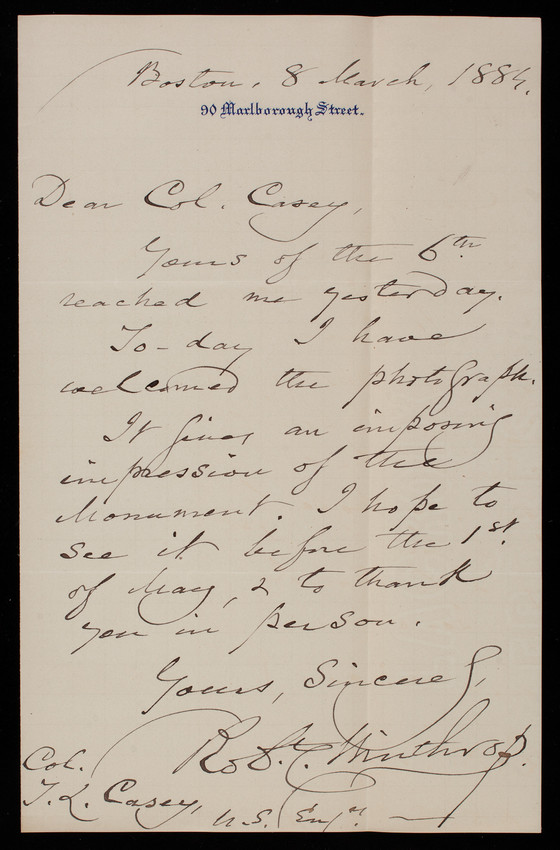 Boston, 8 March, 1884.
90 Marlborough Street.
Dear Col. Casey,
Yours of the 6th
reached me yesterday.
To-day I have
welcomed the photograph.
It gives an imposing
impression of the
Monument. I hope to
see it before the 1st.
of May, & to thank
you in person.
Yours, Sincerely,
Robt. C. Winthrop.
Col.
T. L. Casey,
U.S. Engrs.